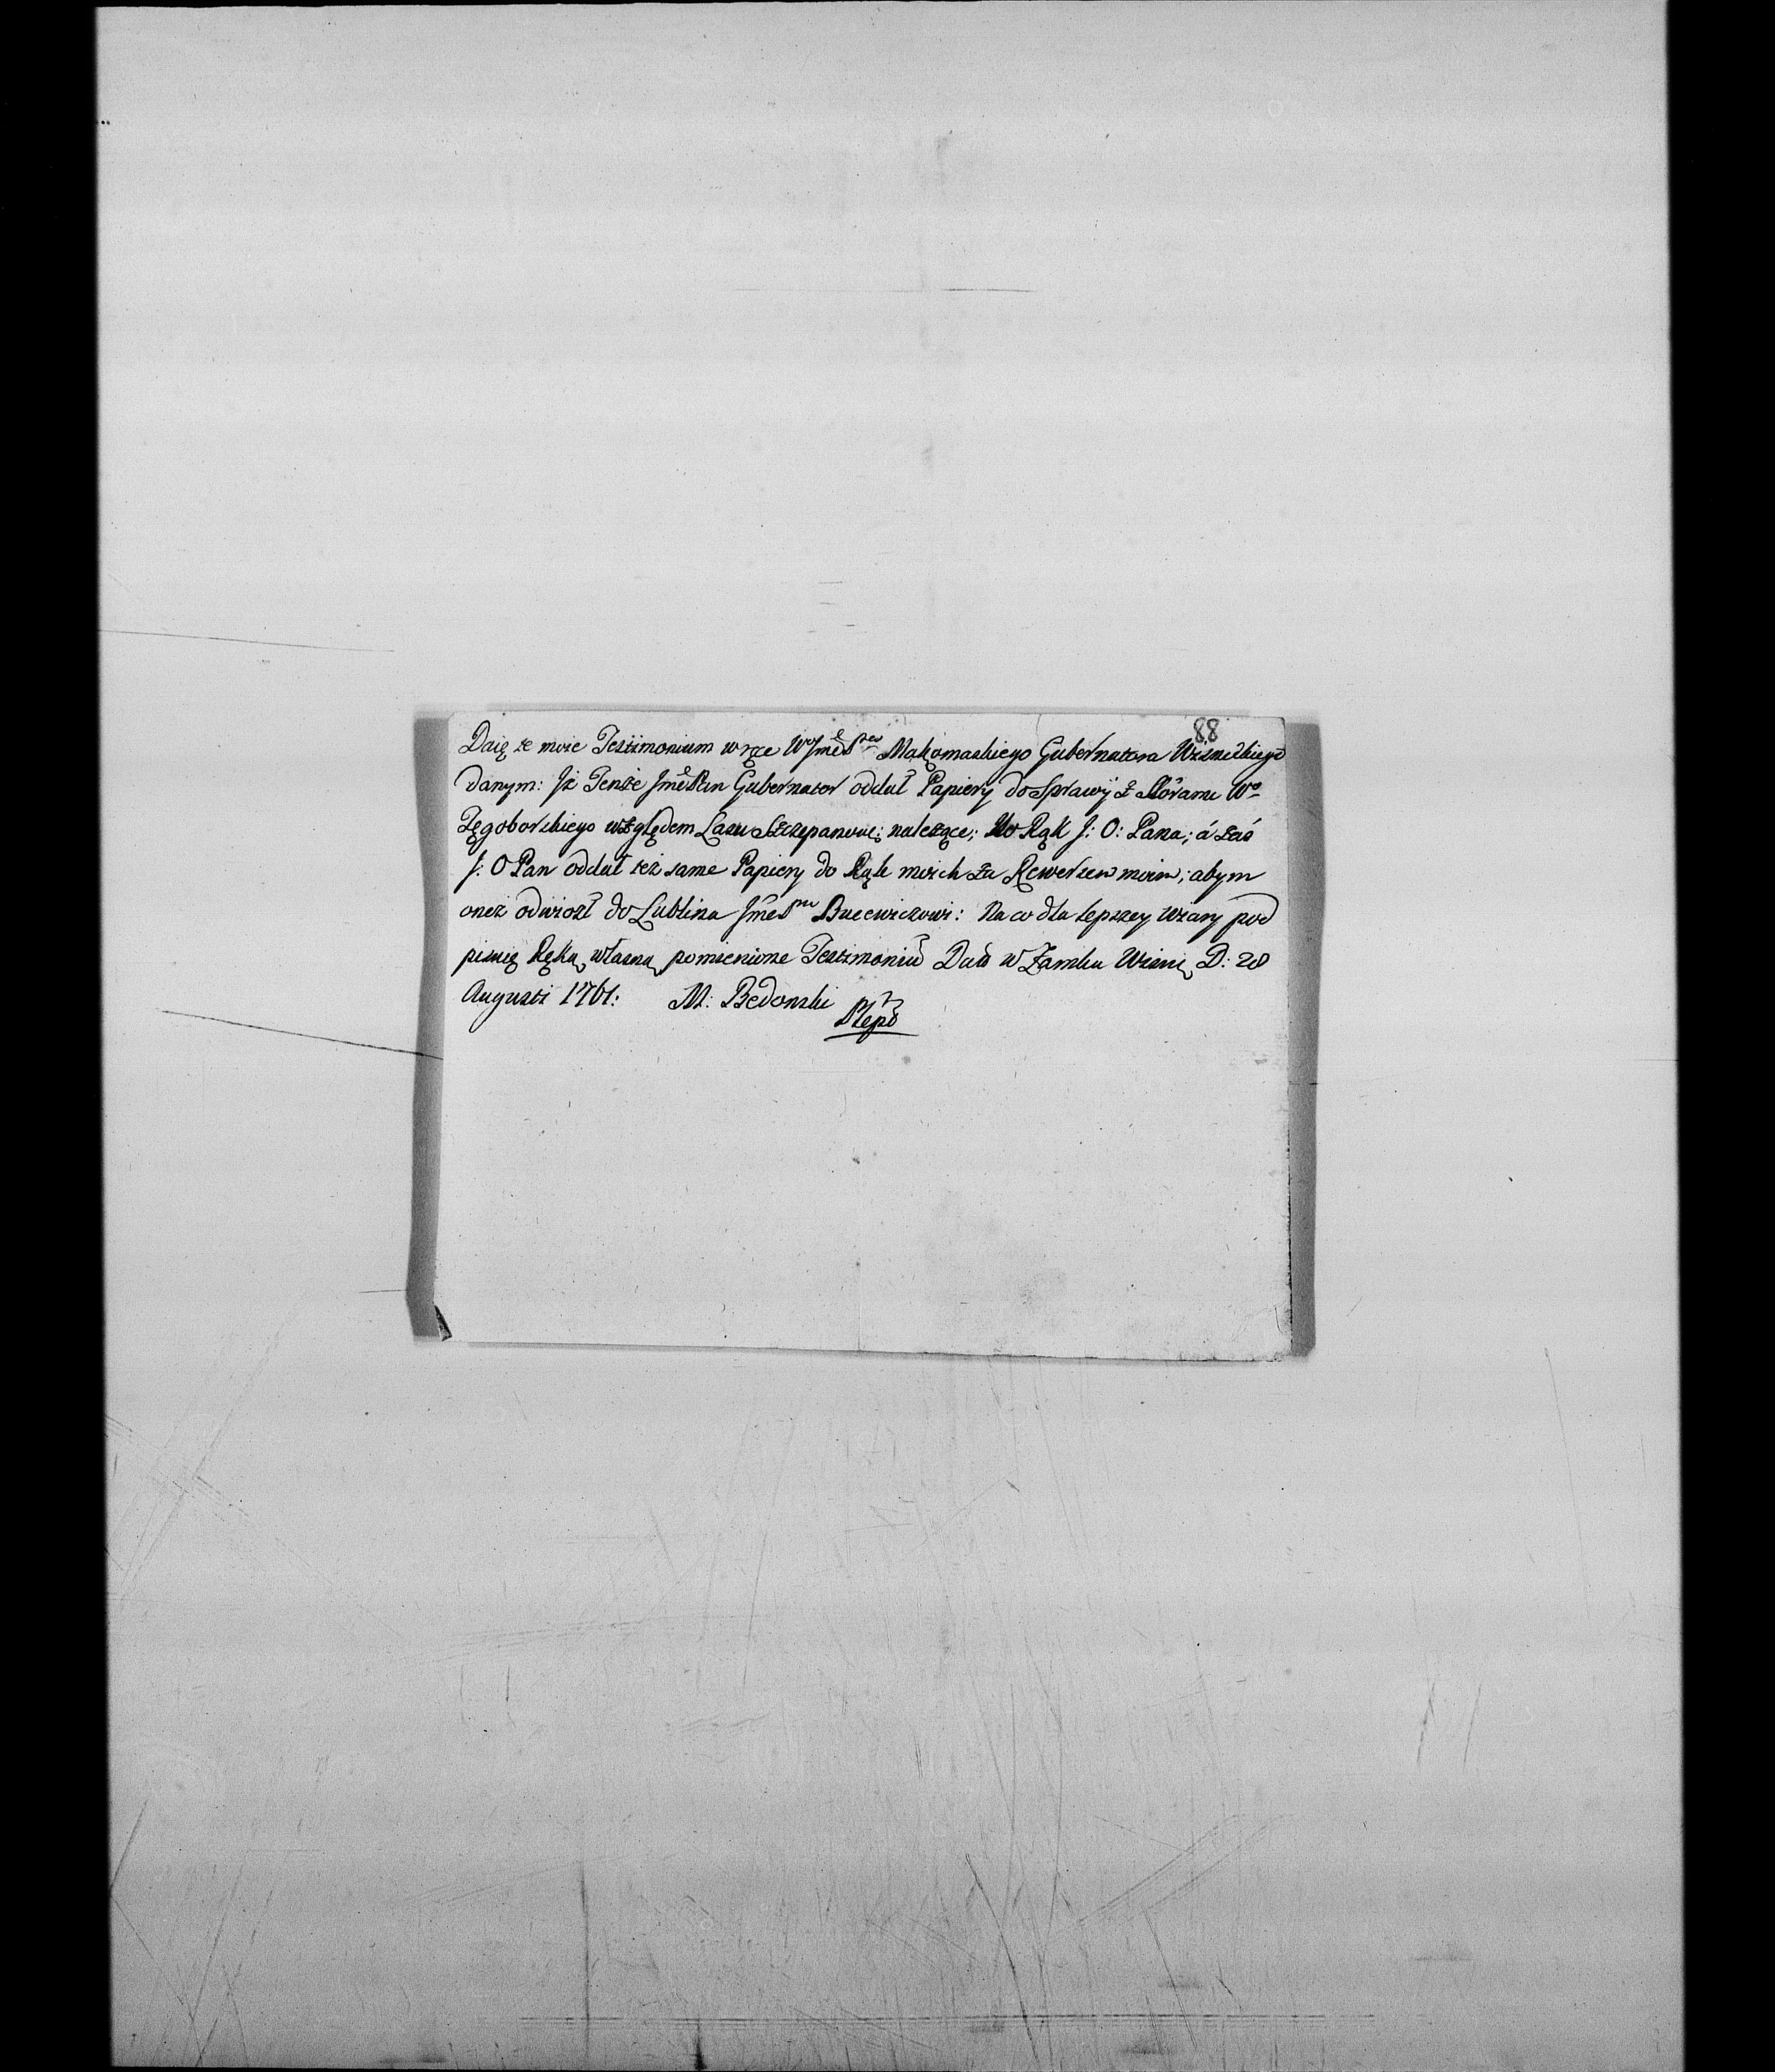 88
Daię te moie Testimonium w ręce WJmć Pna Makomaskiego Gubernatora Wisnickiego
danym: Jż Tenże Jmć Pan Gubernator oddał Papiery do Sprawy z Skorami Wo
Tęgoborskiego względem Lasu Szczepanow: należące; do Rąk J: O: Pana; á zaś
J: O Pan oddał też same Papiery do Rąk moich za Rewersem moim; abym
oneż odwiozł do Lublina Jmć Pnu Bucewiczowi: Na co dla lepszey wiary pod
pisuię Ręką własną pomienione Testimoniũ Dań w Zamku Wisni D: 28
Augusti 1761: M: Bedonski